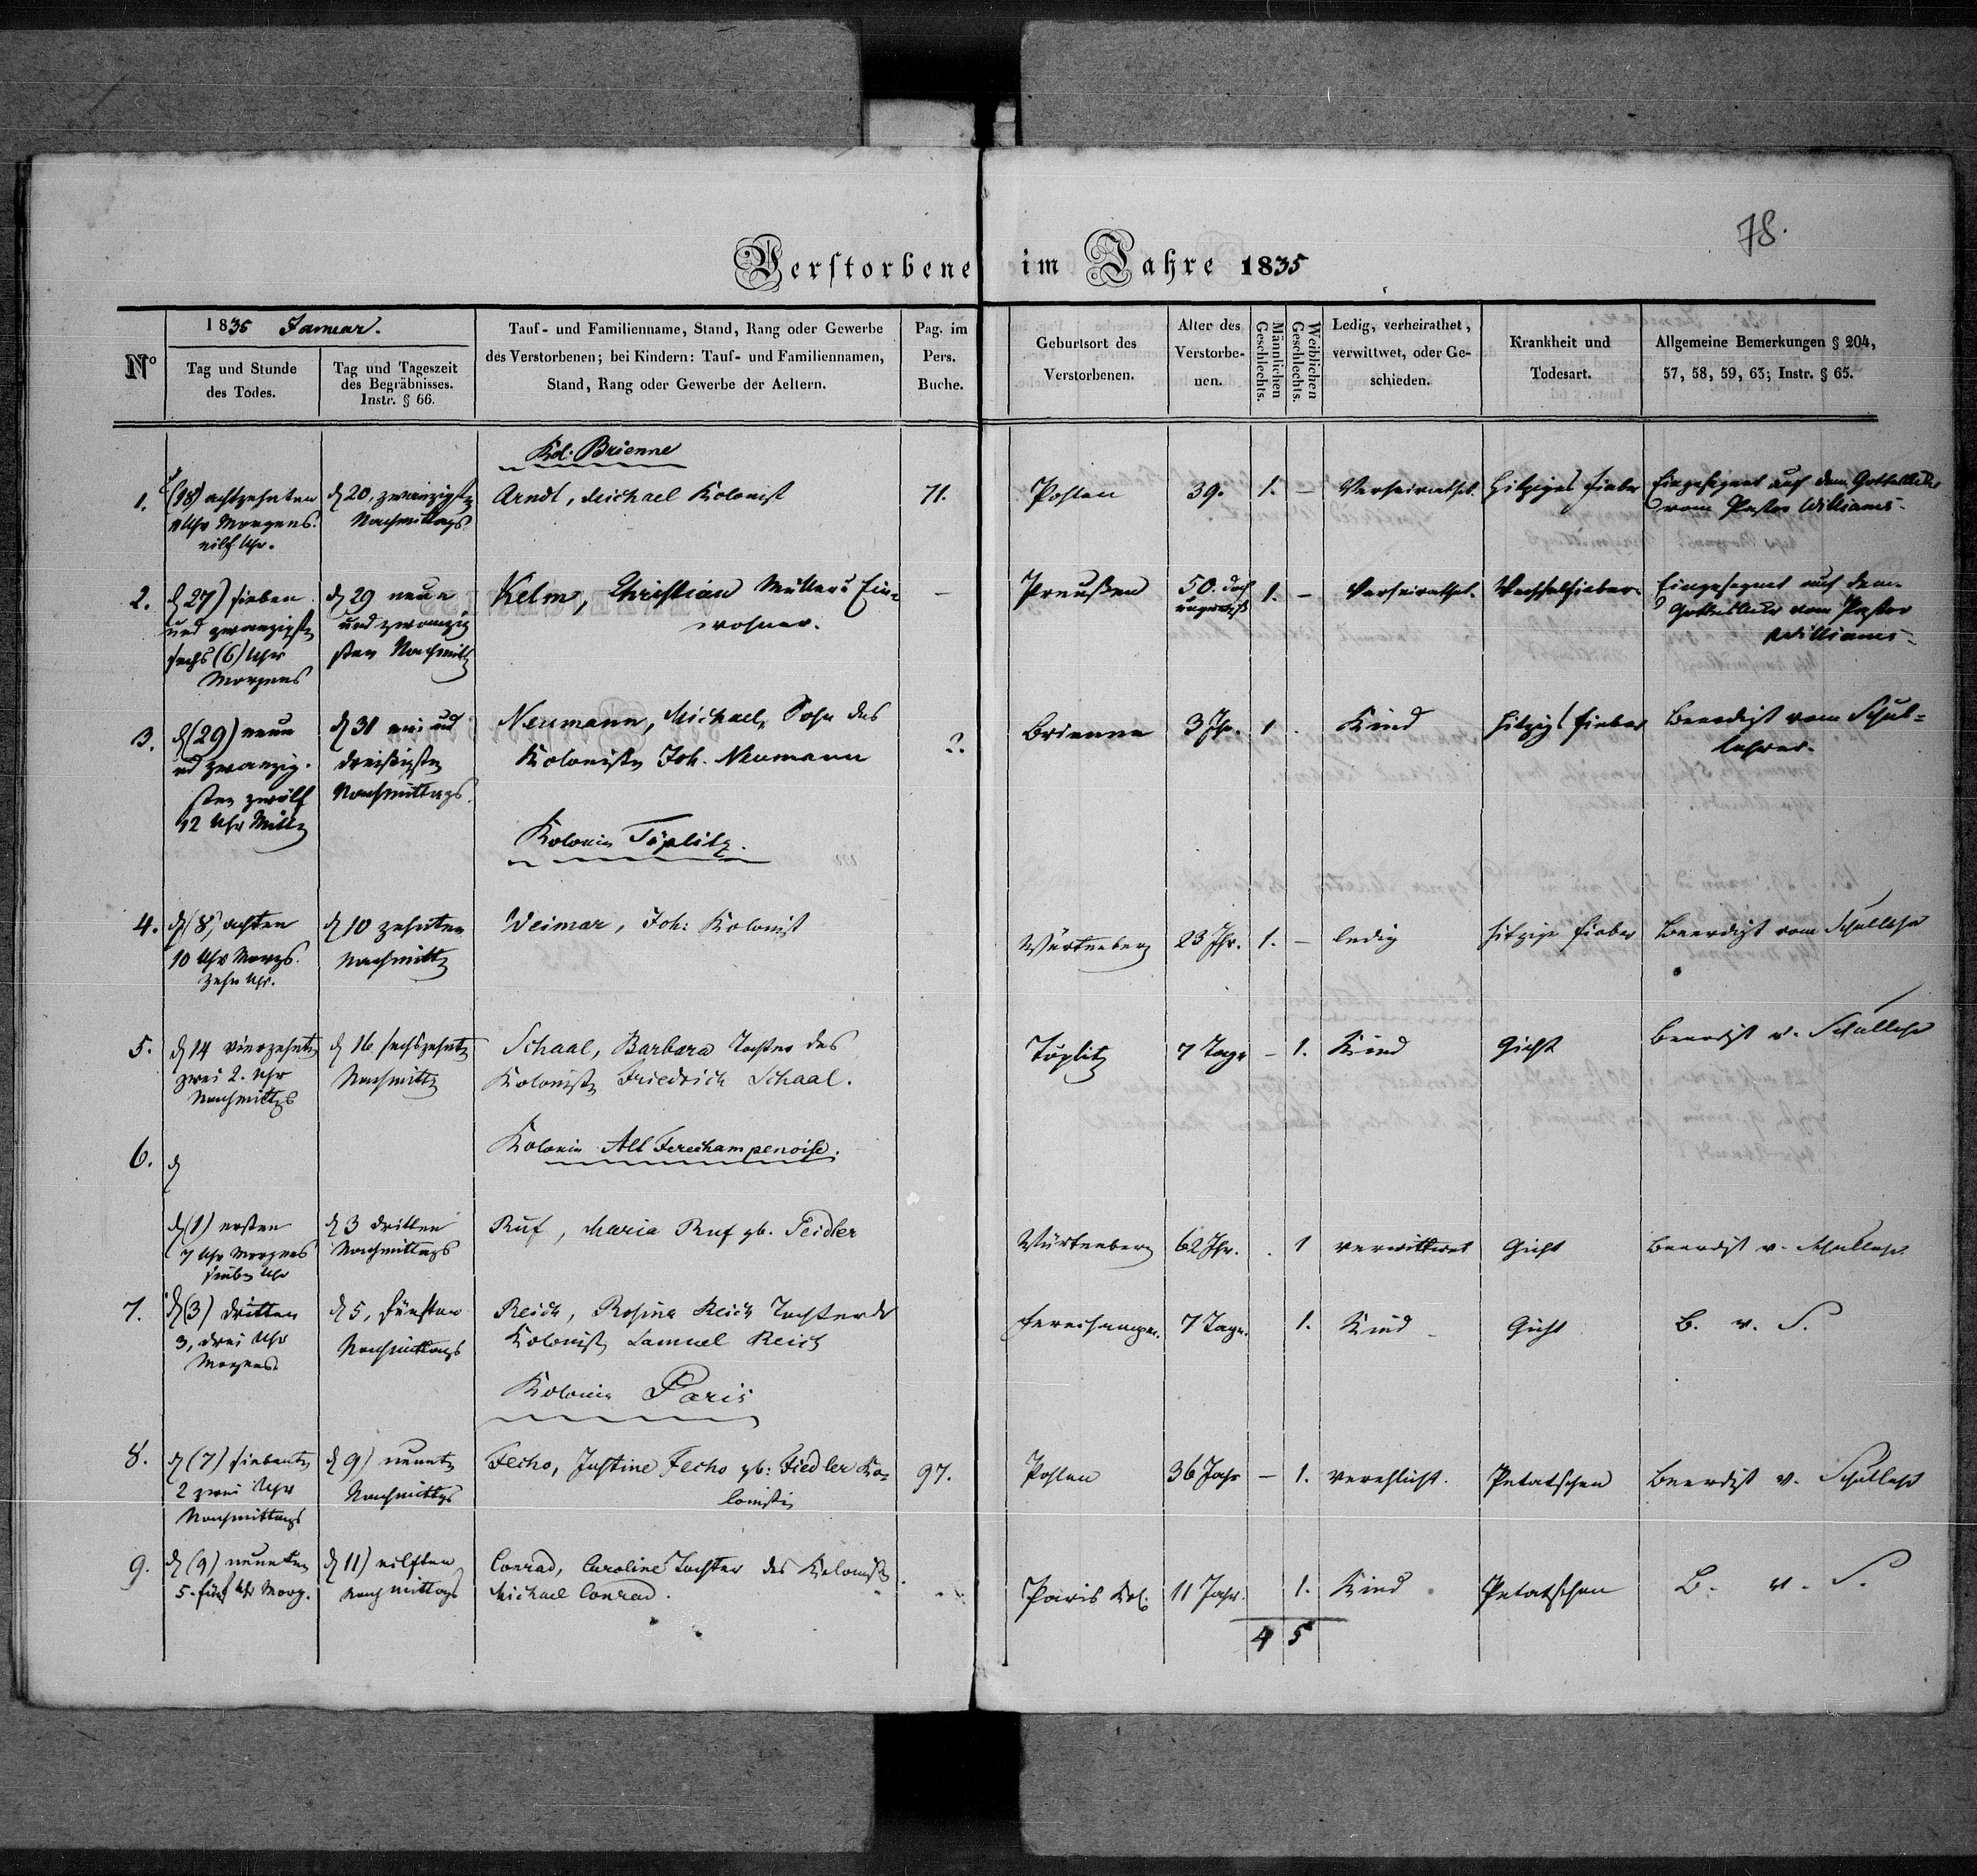 78.
Verstorbene im Jahre 1835
Nº
1835 Januar.
Tag und Stunde des Todes.
Tag und Tageszeit des Begräbnisses. Instr. § 66.
Tauf- und Familienname, Stand, Rang oder Gewerbe
des Verstorbenen; bei Kindern: Tauf- und Familiennamen,
Stand, Rang oder Gewerbe der Aeltern.
Pag. im Pers. Buche.
Geburtsort des Verstorbenen.
Alter des Verstorbe-nen.
Männlichen Geschlechts.
Weiblichen Geschlechts.
Ledig, verheirathet, verwittwet, oder Ge-schieden.
Krankheit und Todesart.
Allgemeine Bemerkungen § 204, 57, 58, 59, 63; Instr. § 65.
Kol. Brienne
1.
(18) achtzehnten
11 Uhr Morgens.
eilf Uhr.
d 20, zwanzigsten
Nachmittags
Arndt, Michael Kolonist
71.
Pohlen
39.
1. –
Verheirathet.
Hitziges Fieber
Eingesegnet auf dem Gottesacker
vom Pastor Williams.
2.
d 27) sieben
und zwanzigsten
sechs (6) Uhr
Morgens
d 29 neun
und zwanzig
sten Nachmitt
Kelm, Christian Müller u Ein=
wohner.
–
Preußen
50. doch
ungewiß
1. –
Verheirathet.
Wechselfieber.
Eingesegnet auf dem
Gottesacker vom Pastor
Williams
3.
d (29) neun
ud zwanzig-
sten zwölf
12 Uhr Mittg
d 31 ein ud
dreißigsten
Nachmittags.
Neumann, Michael, Sohn des
Kolonisten Joh. Neumann
2.
Brienne
3 Jhr.
1 .
Kind
hitzigs Fieber
Beerdigt vom Schul=
lehrer.
Kolonie Töplitz.
4.
d (8) achten
10 Uhr Morgs.
Zehn Uhr.
d 10 zehnten
Nachmitt
Weimar, Joh: Kolonist
Würtenberg
23 Jhr.
1. –
ledig
hitzige Fieber
Beerdigt vom Schulleh
5.
d 14 vierzehnt
zwei 2. Uhr
Nachmittgs
d 16 sechszehnt
Nachmitt
Schaal, Barbara Tochter des
Kolonisten Friedrich Schaal.
Töplitz
7 Tage
– 1.
Kind
Gicht
Beerdigt v. Schulleh
Kolonie Alt Ferechampenoise.
6.
d
d (1) ersten
7 Uhr Morgens
sieben Uhr
d 3 dritten
Nachmittags
Ruf, Maria Ruf gb. Feidler
Würtenberg
62 Jhr.
. 1
verwittwet
Gicht
Beerdigt v. Schulleh
7.
d (3) dritten
3, drei Uhr
Morgens.
d 5, fünften
Nachmittags
Reich, Rosina Reich Tochter ds
Kolonist Samuel Reich
Ferechampe.
7 Tage.
1.
Kind
Gicht
B. v. S.
Kolonie Paris
8.
d (7) siebenten
2 zwei Uhr
Nachmittags
d 9) neunten
Nachmittgs
Fecho, Justine Fecho gb: Fiedler Ko=
lonistin
97.
Pohlen
36 Jahr
– 1.
verehlicht.
Petatschen
Beerdigt v. Schulleh
9.
d (9) neunten
5. fünf Uhr Morg.
d 11) eilften
Nachmittags
Conrad, Caroline Tochter des Kolonist
Michael Conrad.
Paris Kol.
11 Jahr.
1.
Kind
Petatschen
B. v. S.
4 5